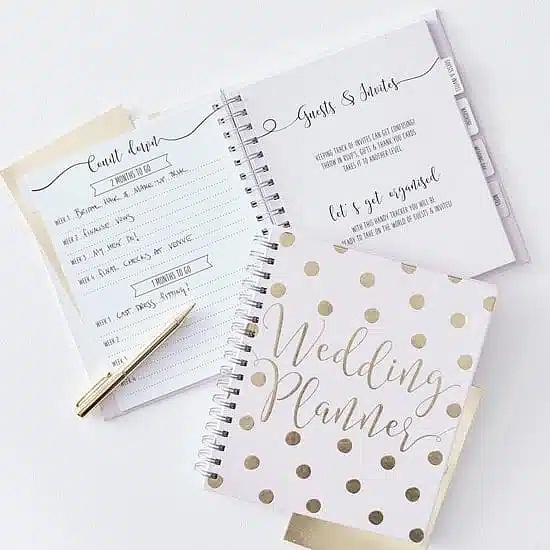 Count down
2 MONTHS TO GO
WEEK 1 BRIDAL HAIR & MAKE-UP TRIAL
WEEK 2 FINALISE VOWS
WEEK 3 MY HEN DO!
WEEK 4 FINAL CHECKS AT VENUE
1 MONTHS TO GO
WEEK 1 LAST DRESS FITTING!
WEEK 2
WEEK 3
Guests & Invites
KEEPING TRACK OF INVITES CAN GET CONFUSING!
THROW IN RSVP'S, GIFTS & THANK YOU CARDS
TAKES IT TO ANOTHER LEVEL.
let's get organised
WITH THIS HANDY TRACKER YOU WILL BE
READY TO TAKE ON THE WORLD OF GUESTS & INVITES!
GUESTS & INVITES
WEDDING DAY
NOTES
Wedding
Planner